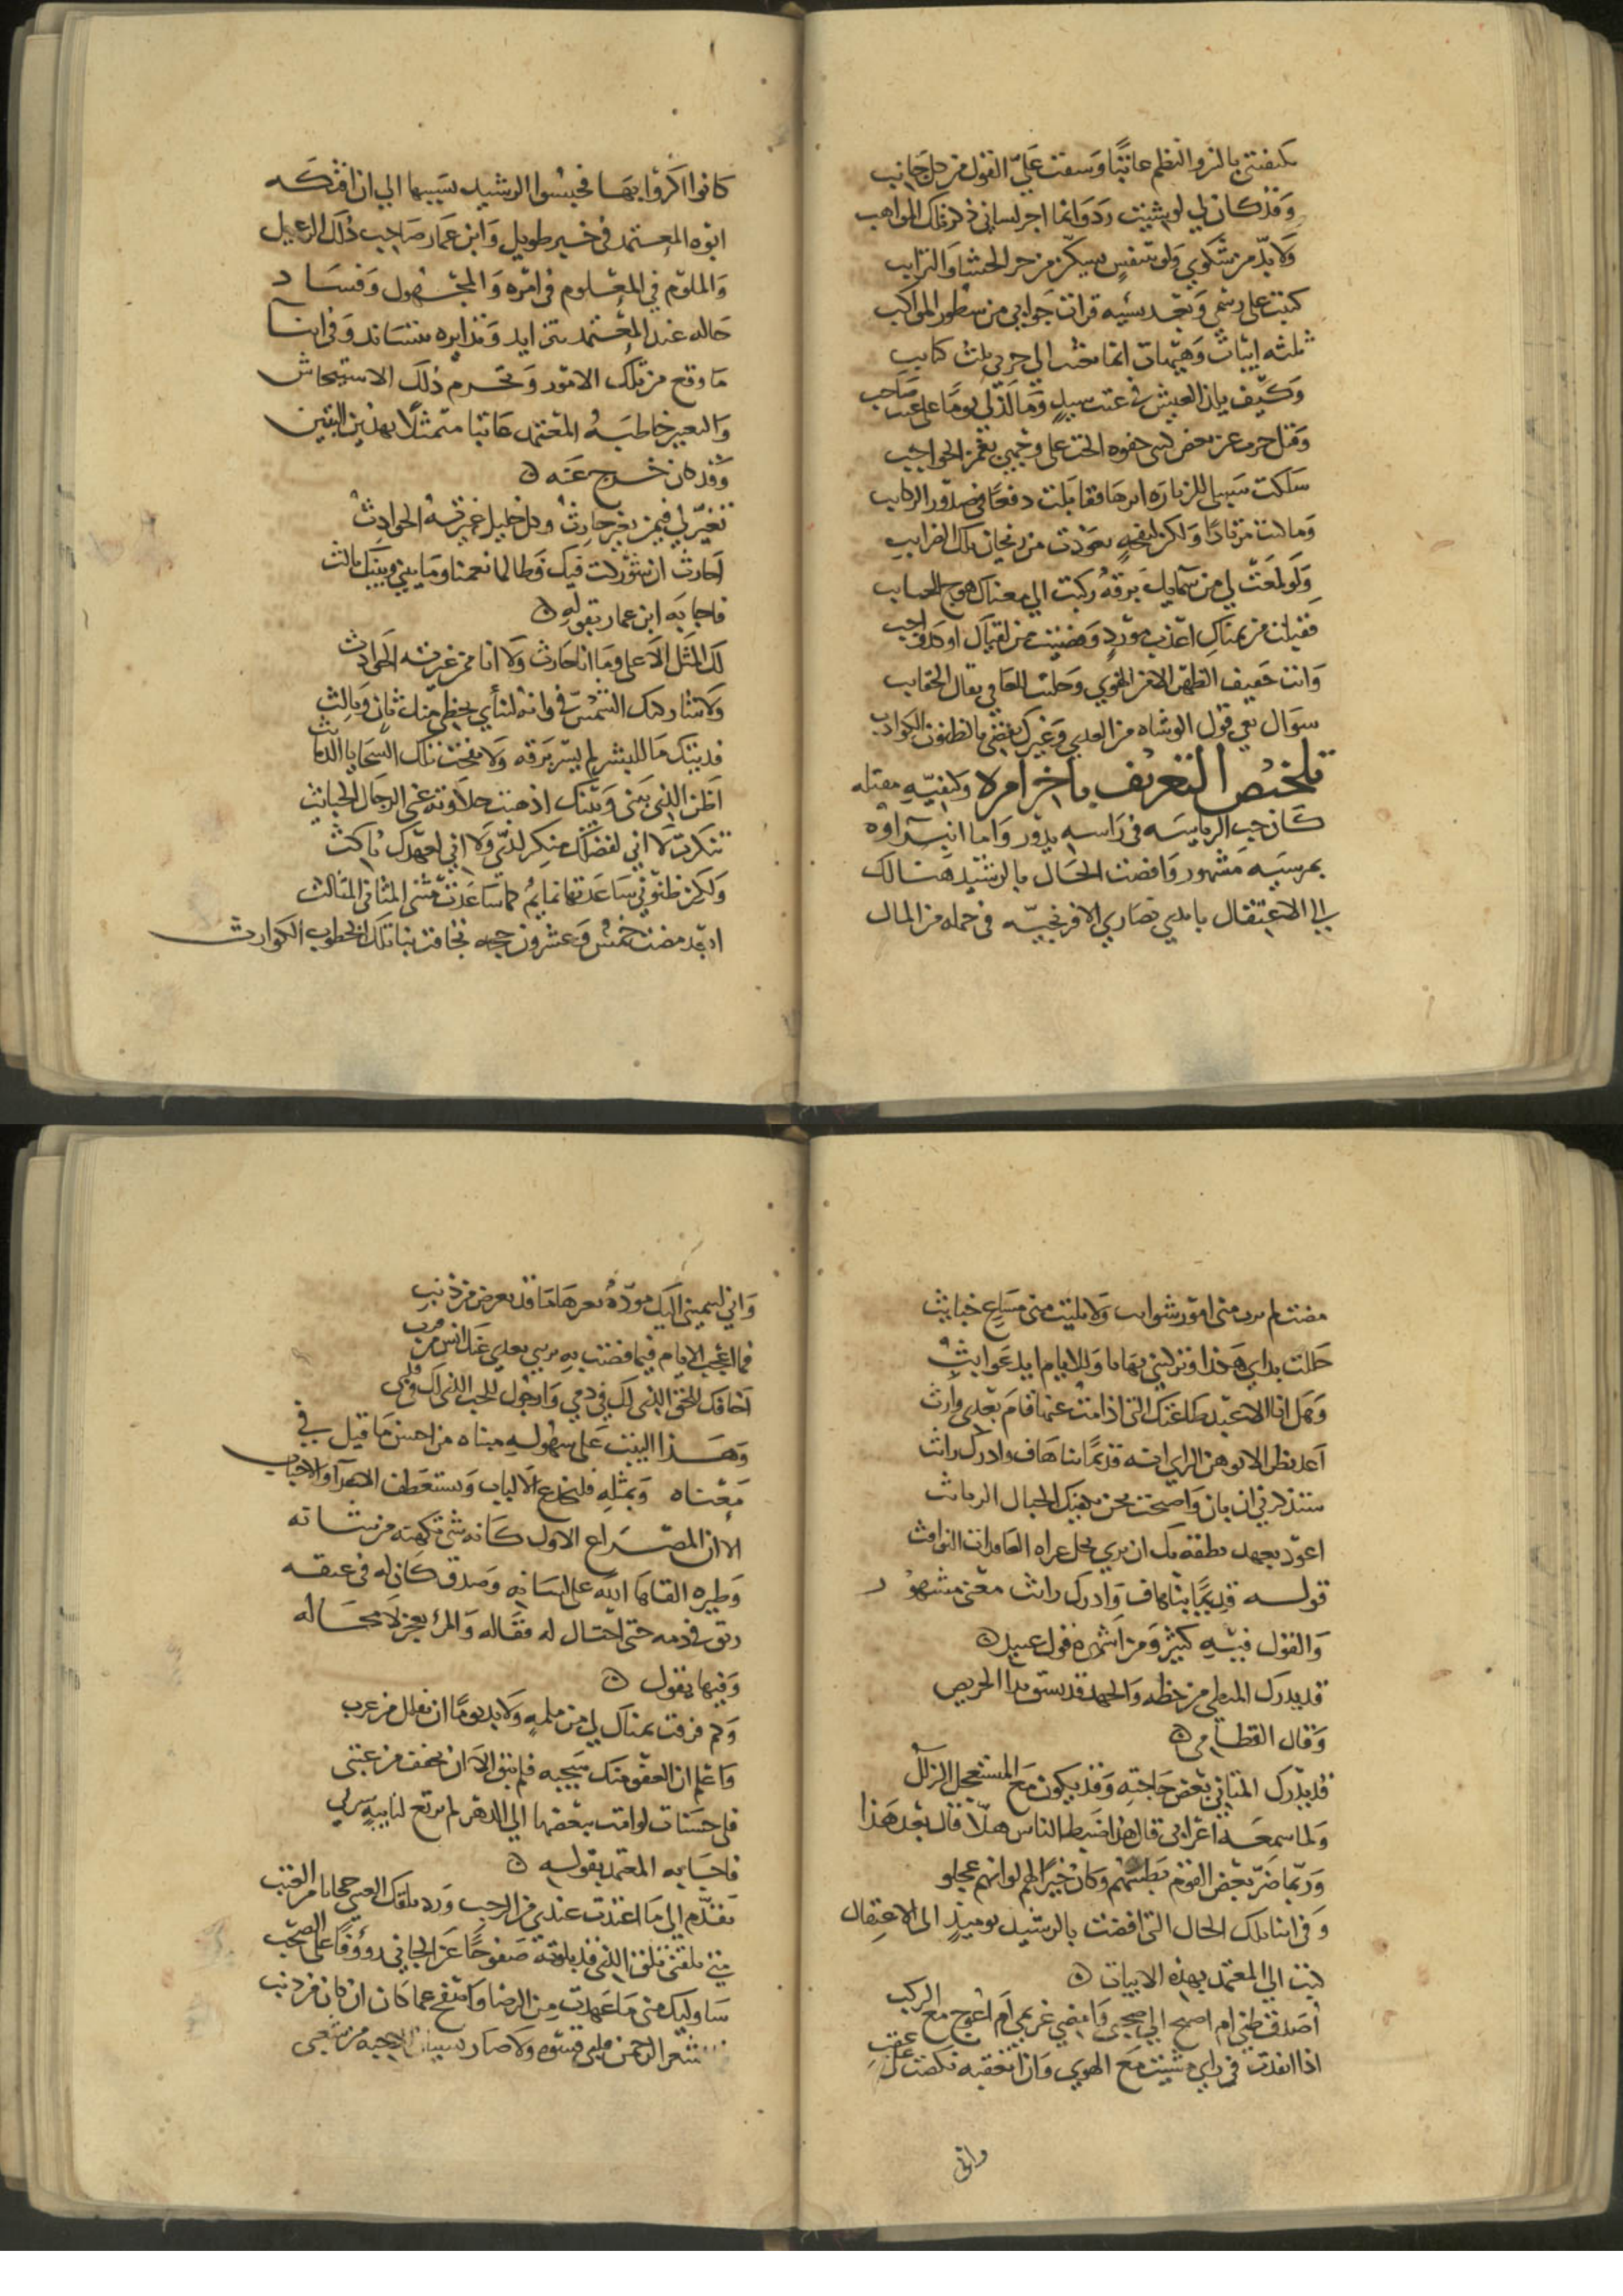 تكنفتني بالنثر والنظم عاتبًا وسقت عليّ القول من كل جانب
وقد كان لي لو شئت رد وانما اجر لساني ذكر تلك المواهب
ولا بدّ من شكوى ولو بتنفسٍ يسكّن من حر الحشا والترايب
كتبت على رسمي وبعد نسيه قرات جوابي من سطور المواكب
ثلثه ابيات وهيهات انما بعثت الي حربي ثلث كتايب
وكيف يلذ العيش في عتب سيدٍ وما لذ لي يومًا على عتب صاحب
وقبل جرت عن بعض كتبي جفوه الحت على وجهي بغمز الحواجب
سلكت سبيلي للزياره اثرها فقابلت دفعًا في صدور الركايب
وما كنت مرتادًا ولكن لنفحةٍ تعودت من ريحان تلك الضرايب
ولو لمعت لي من سمايك برقة ركبت الي مغناك هوج السحايب
فقبلت من يمناك اعذب مورد وقضيت من لقياك اوكد واجب
وانت خفيف الظهر الا من النوي وخليت للعافي ثقال الحقايب
سوال يعي قول الوشاه من العدي وغيرك يقضي بالظنون الكواذب
تلخيص التعريف باخر امره وكيفيه مقتله
كان حب الرياسه في راسه يدور واما انتزاوه
بمرسيه مشهور وافضت الحال بالرشيد هنالك
الي الاعتقال بايدي نصاري الافرنجيه في جمله من المال
كانوا اكروا بها فحبسوا الرشيد بسببها الي ان افتكه
ابوه المعتمد في خبر طويل وابن عمار صاحب ذلك الرعيل
والملوم في المعلوم في امره والمجهول وفساد
حاله عند المعتمد متزايد وتدابره متساند وفي اثنا
ما وقع من تلك الامور وتخرم ذلك الاستيحاش
والتغير خاطبه المعتمد عاتبا متمثلا بهذين البيتين
وقد كان خرج عنه
تغير لي فيمن تغير حارث وكل خليل غيرته الحوادث
احارث ان شوركت فيك فطالما نعمنا وما بيني وبينك ثالث
فاجابه ابن عمار بقوله
لك المثل الاعلى وما انا حارث ولا انا ممن غيرته الحوادث
ولا شاركتك الشمس في وانه لينأي بحظي منك ثان وثالث
فديتك ما للبشر لم يسر برقه ولا نفحت تلك السجايا الدمايث
اظن الذي بيني وبينك اذهبت حلاوته عني الرجال الخبايث
تنكرت لا اني لفضلك منكر لدي ولا اني لعهدك ناكث
ولكن ظنون ساعدتها نمايم كما ساعدت مثنى المثاني المثالث
ابعد مضت خمس وعشرون حجه تجافت بنا تلك الخطوب الكوارث
مضت لم ترب مني امور شوايب ولا تليت مني مساع خبايث
حللت يدا بي هكذا وتركتني نهابا وللايام ايد عوابث
وهل انا الا عبد طاعتك التي اذا مت عنها قام بعدي وارث
اعد نظرا لا توهن الراي انه قديمًا نبا هاف وادرك رائث
ستذكرني ان بان وصلي واصبحت تحن بكفيك الحبال الرثايث
اعوذ بعهد نطته بك ان يري تحل عراه العاقدات النوافث
قوله قديمًا نبا هاف وادرك رائث معنى مشهور
والقول فيه كثير ومن اشهره قول عبيد
قد يدرك المبطي من حظه والجهد قد يسبق بدا الحريص
وقال القطامي
قد يدرك المتاني بعض حاجته وقد يكون مع المستعجل الزلل
ولما سمعه اعرابي قال هذا ضبط الناس هلا قال بعد هذا
وربما ضر بعض القوم بطئهم وكان خيرًا لهم لو انهم عجلو
وفي اثنا تلك الحال التي افضت بالرشيد يوميذ الى الاعتقال
كتب الي المعتمد بهذه الابيات
اصدق ظني ام اصيح الي صحبي وامضي غريمي ام اعوج مع الركب
اذا انقدت في رايي مشيت مع الهوي وان اتعقبه نكصت على عقب
واني
واني ليثنيني اليك مودة يغيرها ما قد تعرض من ذنب
فما اعجب الايام فيما قضت به تريني بعدي عنك انس من قرب
اخافك للحق الذي لك في دمي وارجوك للحب الذي لك في قلبي
وهذا البيت على سهوله مبناه من احسن ما قيل في
معناه وبمثله فلتخدع الالباب وتستعطف الاعدآ والاحباب
الا ان المصراع الاول كانه شي تكهنه من شانه
وطيره القاها الله على لسانه وصدق كان له في عنقه
ربق في دمه حتى احتال له فقاله والمرء يعجز لا محاله
وفيها يقول
وكم فرقت يمناك لي من ملمه ولا بد يومًا ان تفلل من غرب
واعلم ان العفو منك سجيه فلم يبق الا ان تخفف من عتبي
فلي حسنات لو امت ببعضها الي الدهر لم يرتع لنايبه سربي
فاجابه المعتمد بقوله
تقدم الي ما اعتدت عندي من الرحب ورد تلقك العتبى حجابا من العتب
متى تلقني تلق الذي قد بلوته صفوحًا عن الجاني رؤوفًا على الصحب
ساوليك مني ما عهدت من الرضا واصفح عما كان ان كان من ذنب
فما اشعر الرحمن قلبي قسوه ولا صار نسيان الاذمه من شعبي